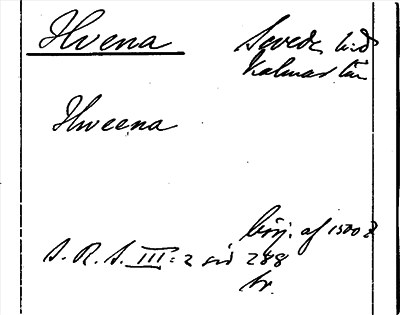 Hvena
Sevede hd
Kalmar län
Hweena
börj. af 1500 t
S. R. S. III: 2 sid 288
br.